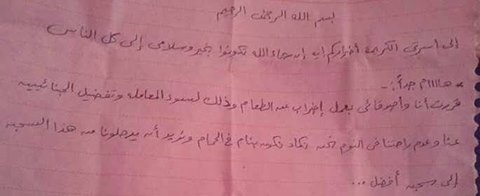 بسم الله الرحمن الرحيم
إلى أسرتي الكريمة أخباركم إيه إن شاء الله تكونوا بخير وسلامي إلى كل الناس
* هااااام جداً :-
قررت أنا وأصدقائي بعمل إضراب عن الطعام وذلك لسوء المعاملة وتفضيل الجنائيين
عنا وعدم راحتنا في النوم نحن نكاد نكون بننام في الحمام ونريد أن يرحلونا من هذا السجن
إلى سجن أفضل ...